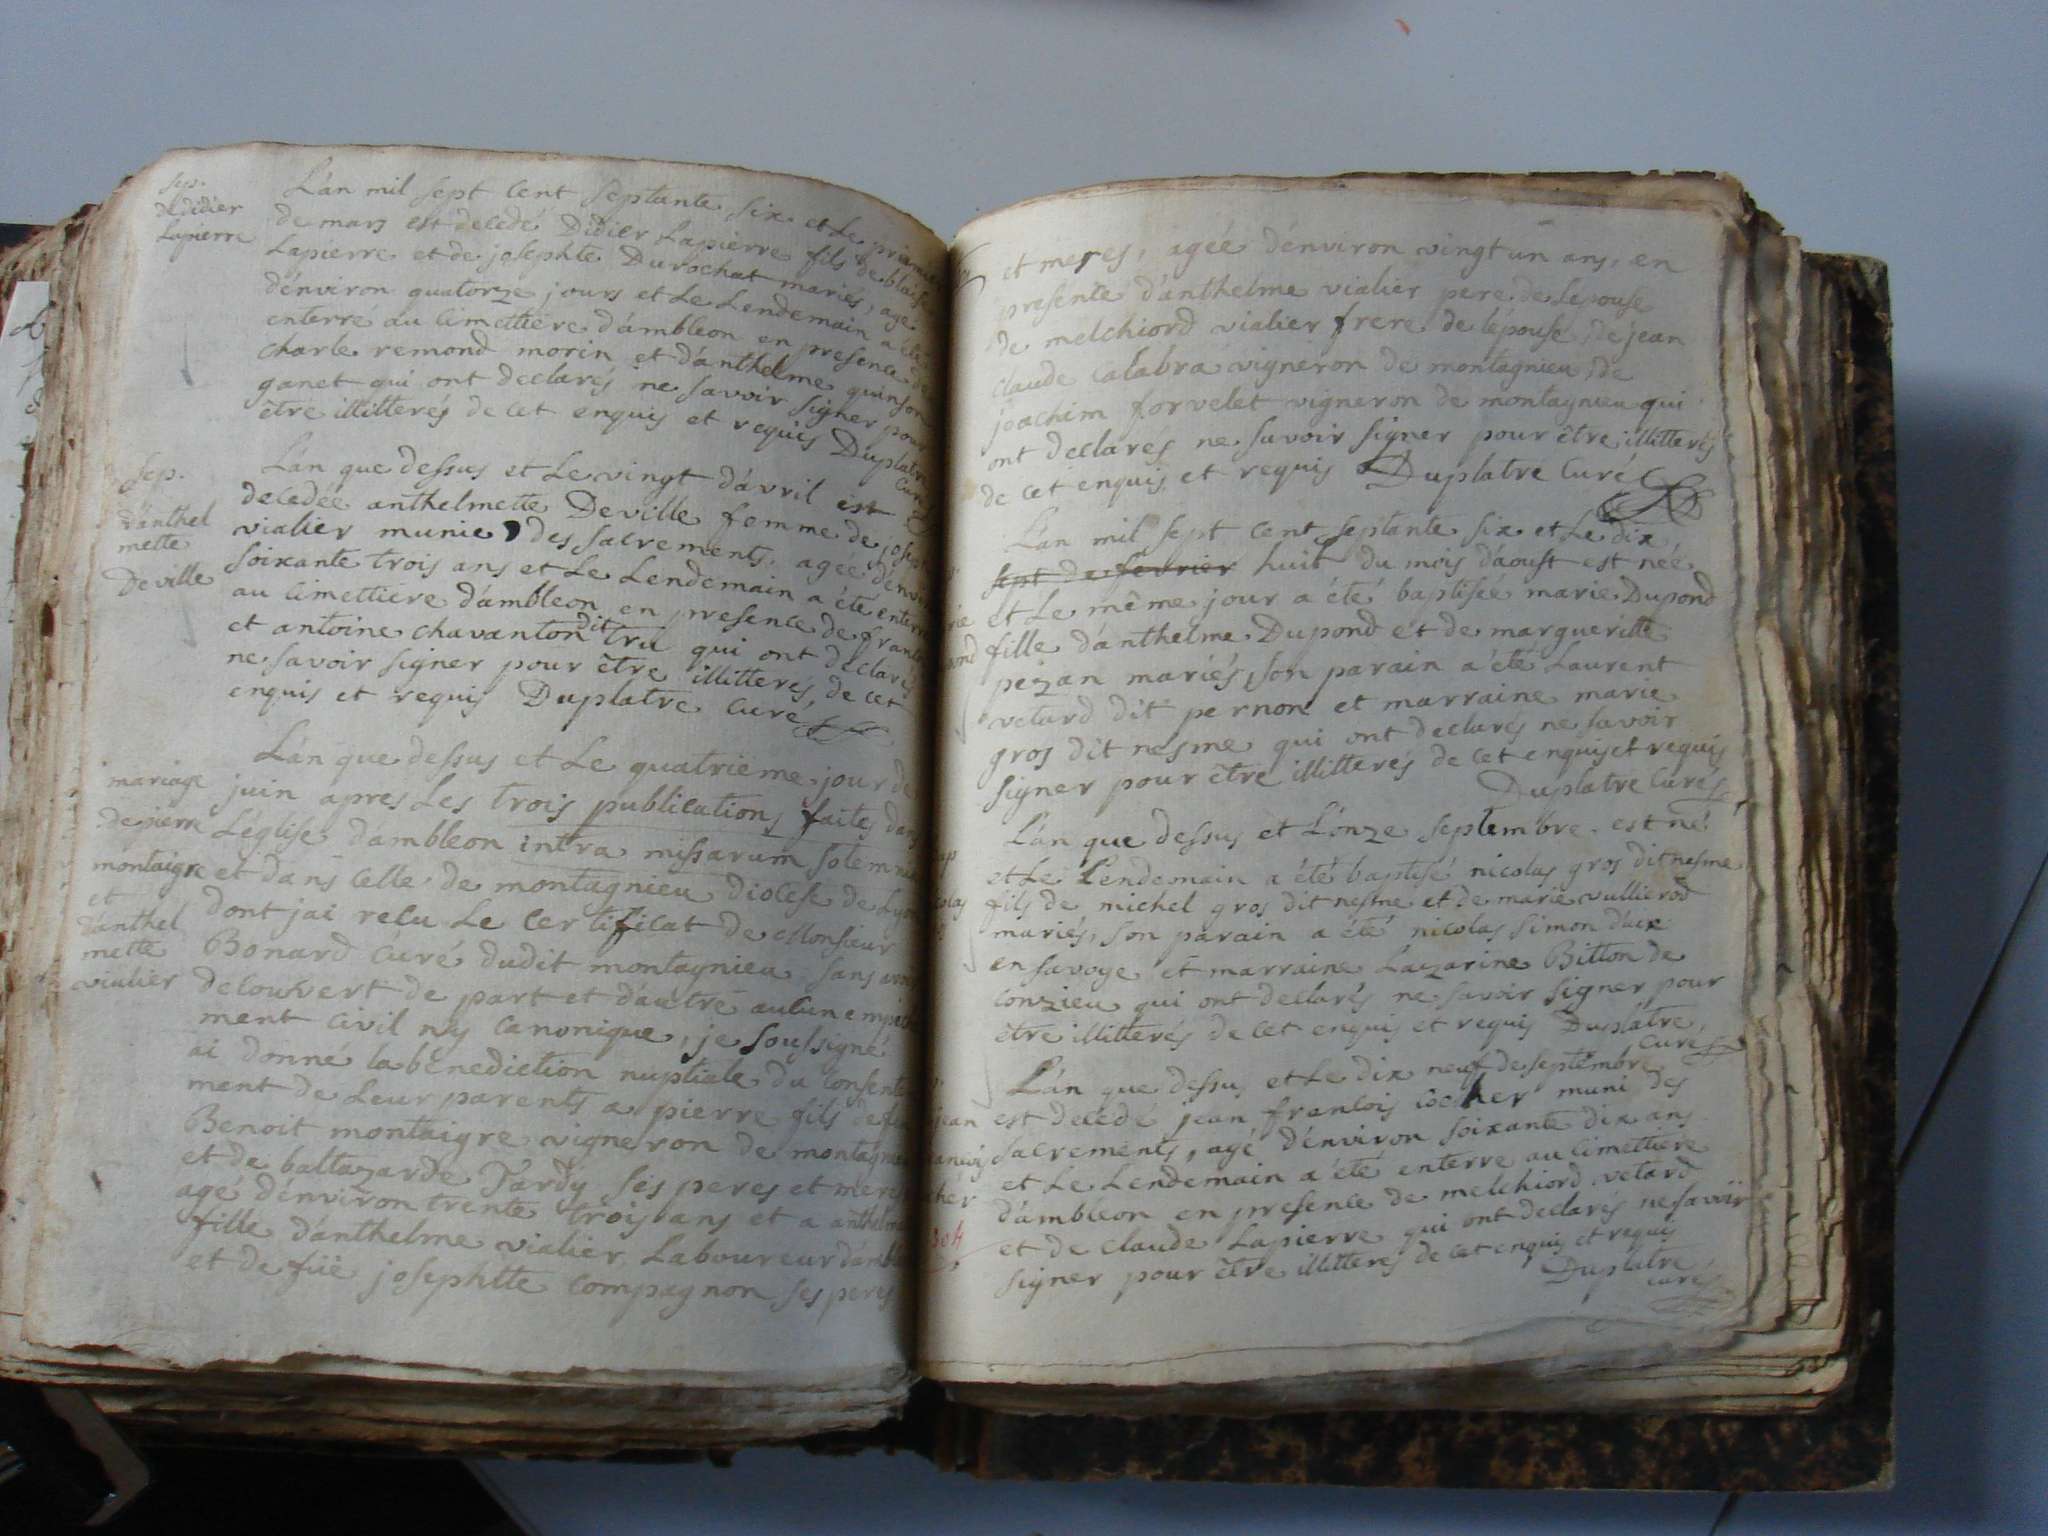 sep.
de didier
Lapierre
L'an mil sept cent septante six et Le premier
de mars est decedé Didier Lapierre fils de blaise
Lapierre et de josephte Durochat mariés, agé
d'environ quatorze jours et Le Lendemain a été
enterré au cimettiere d'ambleon en presence de
charle remond morin et d'anthelme quinson
ganet qui ont declarés ne savoir signer pour
être illitterés de cet enquis et requis Duplatre
curé
sep.
d'anthel
mette
Deville
L'an que dessus et Le vingt d'avril est
decedée anthelmette Deville femme de joseph
vialier munie des sacrements, agée d'environ
soixante trois ans et Le Lendemain a été enterré
au cimettiere d'ambleon en presence de
et antoine chavanton dit tru qui ont declarés
ne savoir signer pour être illitterés, de cet
enquis et requis Duplatre Curé
mariage
de pierre
montaigre
et
d'anthel
mette
vialier
L'an que dessus et Le quatrieme jour de
juin apres Les trois publications faites dans
L'église d'ambleon intra missarum solemnia
et dans celle de montagnieu diocese de Lyon
dont jai recu Le certificat de Monsieur
Bonard curé dudit montagnieu sans avoir
decouvert de part et d'autre aucun empeche
ment civil ny canonique, je soussigné
ai donné la benediction nuptiale du consente
ment de Leur parents a pierre fils de feu
Benoit montaigre vigneron de montagnieu
et de baltazarde Tardy ses peres et meres
agé d'environ trente trois ans et a anthelmette
fille d'anthelme vialier Laboureur d'ambleon
et de füe josephtte compagnon ses peres
et meres, agée d'environ vingt un ans, en
presente d'anthelme vialier pere de Lepouse
de melchiord vialier frere de lépouse, de jean
claude calabra vigneron de montagnieu, de
joachim forvelet vigneron de montagnieu qui
ont declarés ne savoir signer pour être illitterés
de cet enquis et requis Duplatre Curé
L'an mil sept cent septante six et Le dix
sept de fevrier huit du mois d'aoust est née
et Le même jour a été baptisée marie Dupond
fille d'anthelme Dupond et de margueritte
pezan mariés, son parain a été Laurent
vetard dit pernon et marraine marie
gros dit nesme qui ont declarés ne savoir
signer pour être illitterés de cet enquis et requis
Duplatre Curé
L'an que dessus et L'onze septembre est né
et Le Lendemain a été baptisé nicolas gros dit nesme
fils de michel gros dit nesme et de marie vullierod
mariés, son parain a été nicolas simon d'
en savoye et marraine Lazarine Bitton de
conzieu qui ont declarés ne savoir signer pour
être illitterés de cet enquis et requis Duplatre,
Curé
L'an que dessus et Le dix neuf de septembre
est decedé jean francois iocher muni des
sacrements, agé d'environ soixante dix ans
et Le Lendemain a été enterré au cimettiere
d'ambleon en presence de melchiord vetard
et de claude Lapierre qui ont declarés ne savoir
signer pour être illitterés de cet enquis et requis
Duplatre
curé